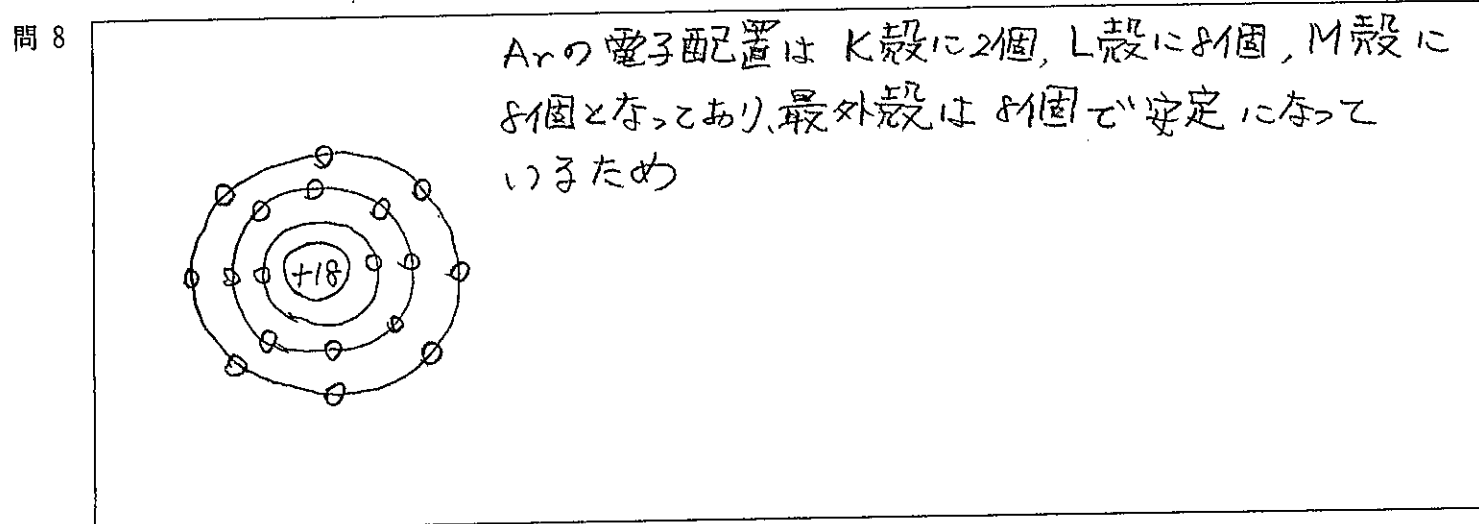 問 8
Arの電子配置は K殻に2個, L殻に8個, M殻に
8個となっており、最外殻は 8個で安定になって
いるため
+18